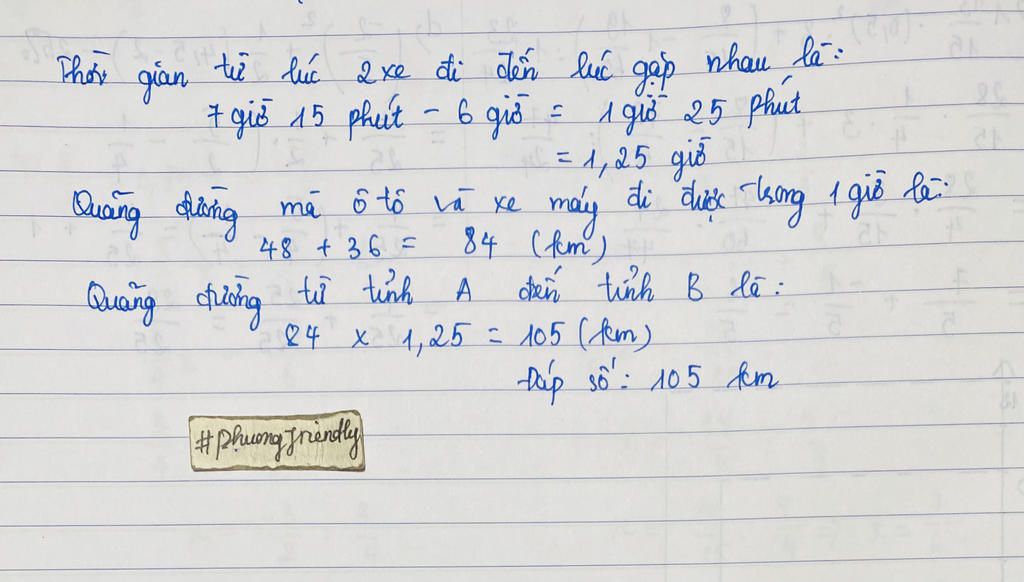 Thời gian từ lúc 2 xe đi đến lúc gặp nhau là:
7 giờ 15 phút - 6 giờ = 1 giờ 25 phút
= 1,25 giờ
Quãng đường mà ô tô và xe máy đi được trong 1 giờ là:
48 + 36 = 84 (km)
Quãng đường từ tỉnh A đến tỉnh B là:
84 x 1,25 = 105 (km)
Đáp số: 105 km
#Phuongfriendly